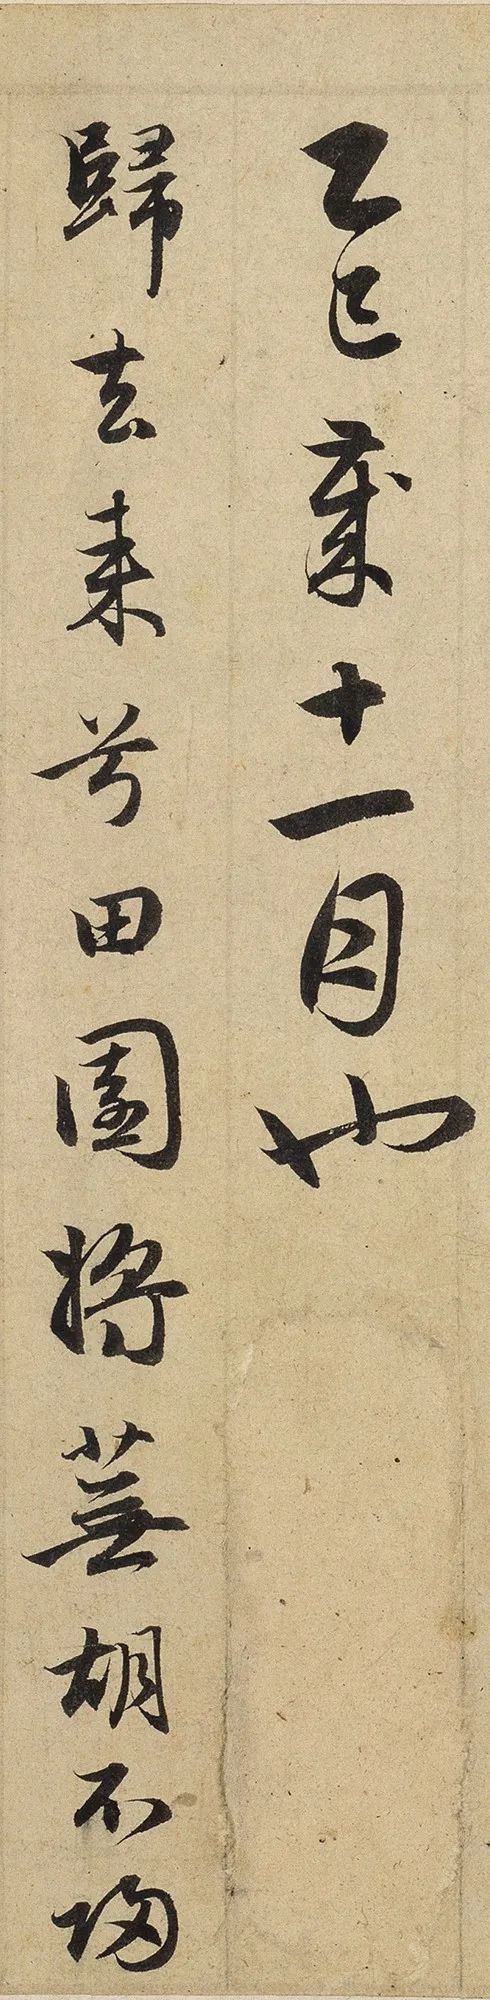 乙巳歲十一月也
歸去来兮田園將蕪胡不歸